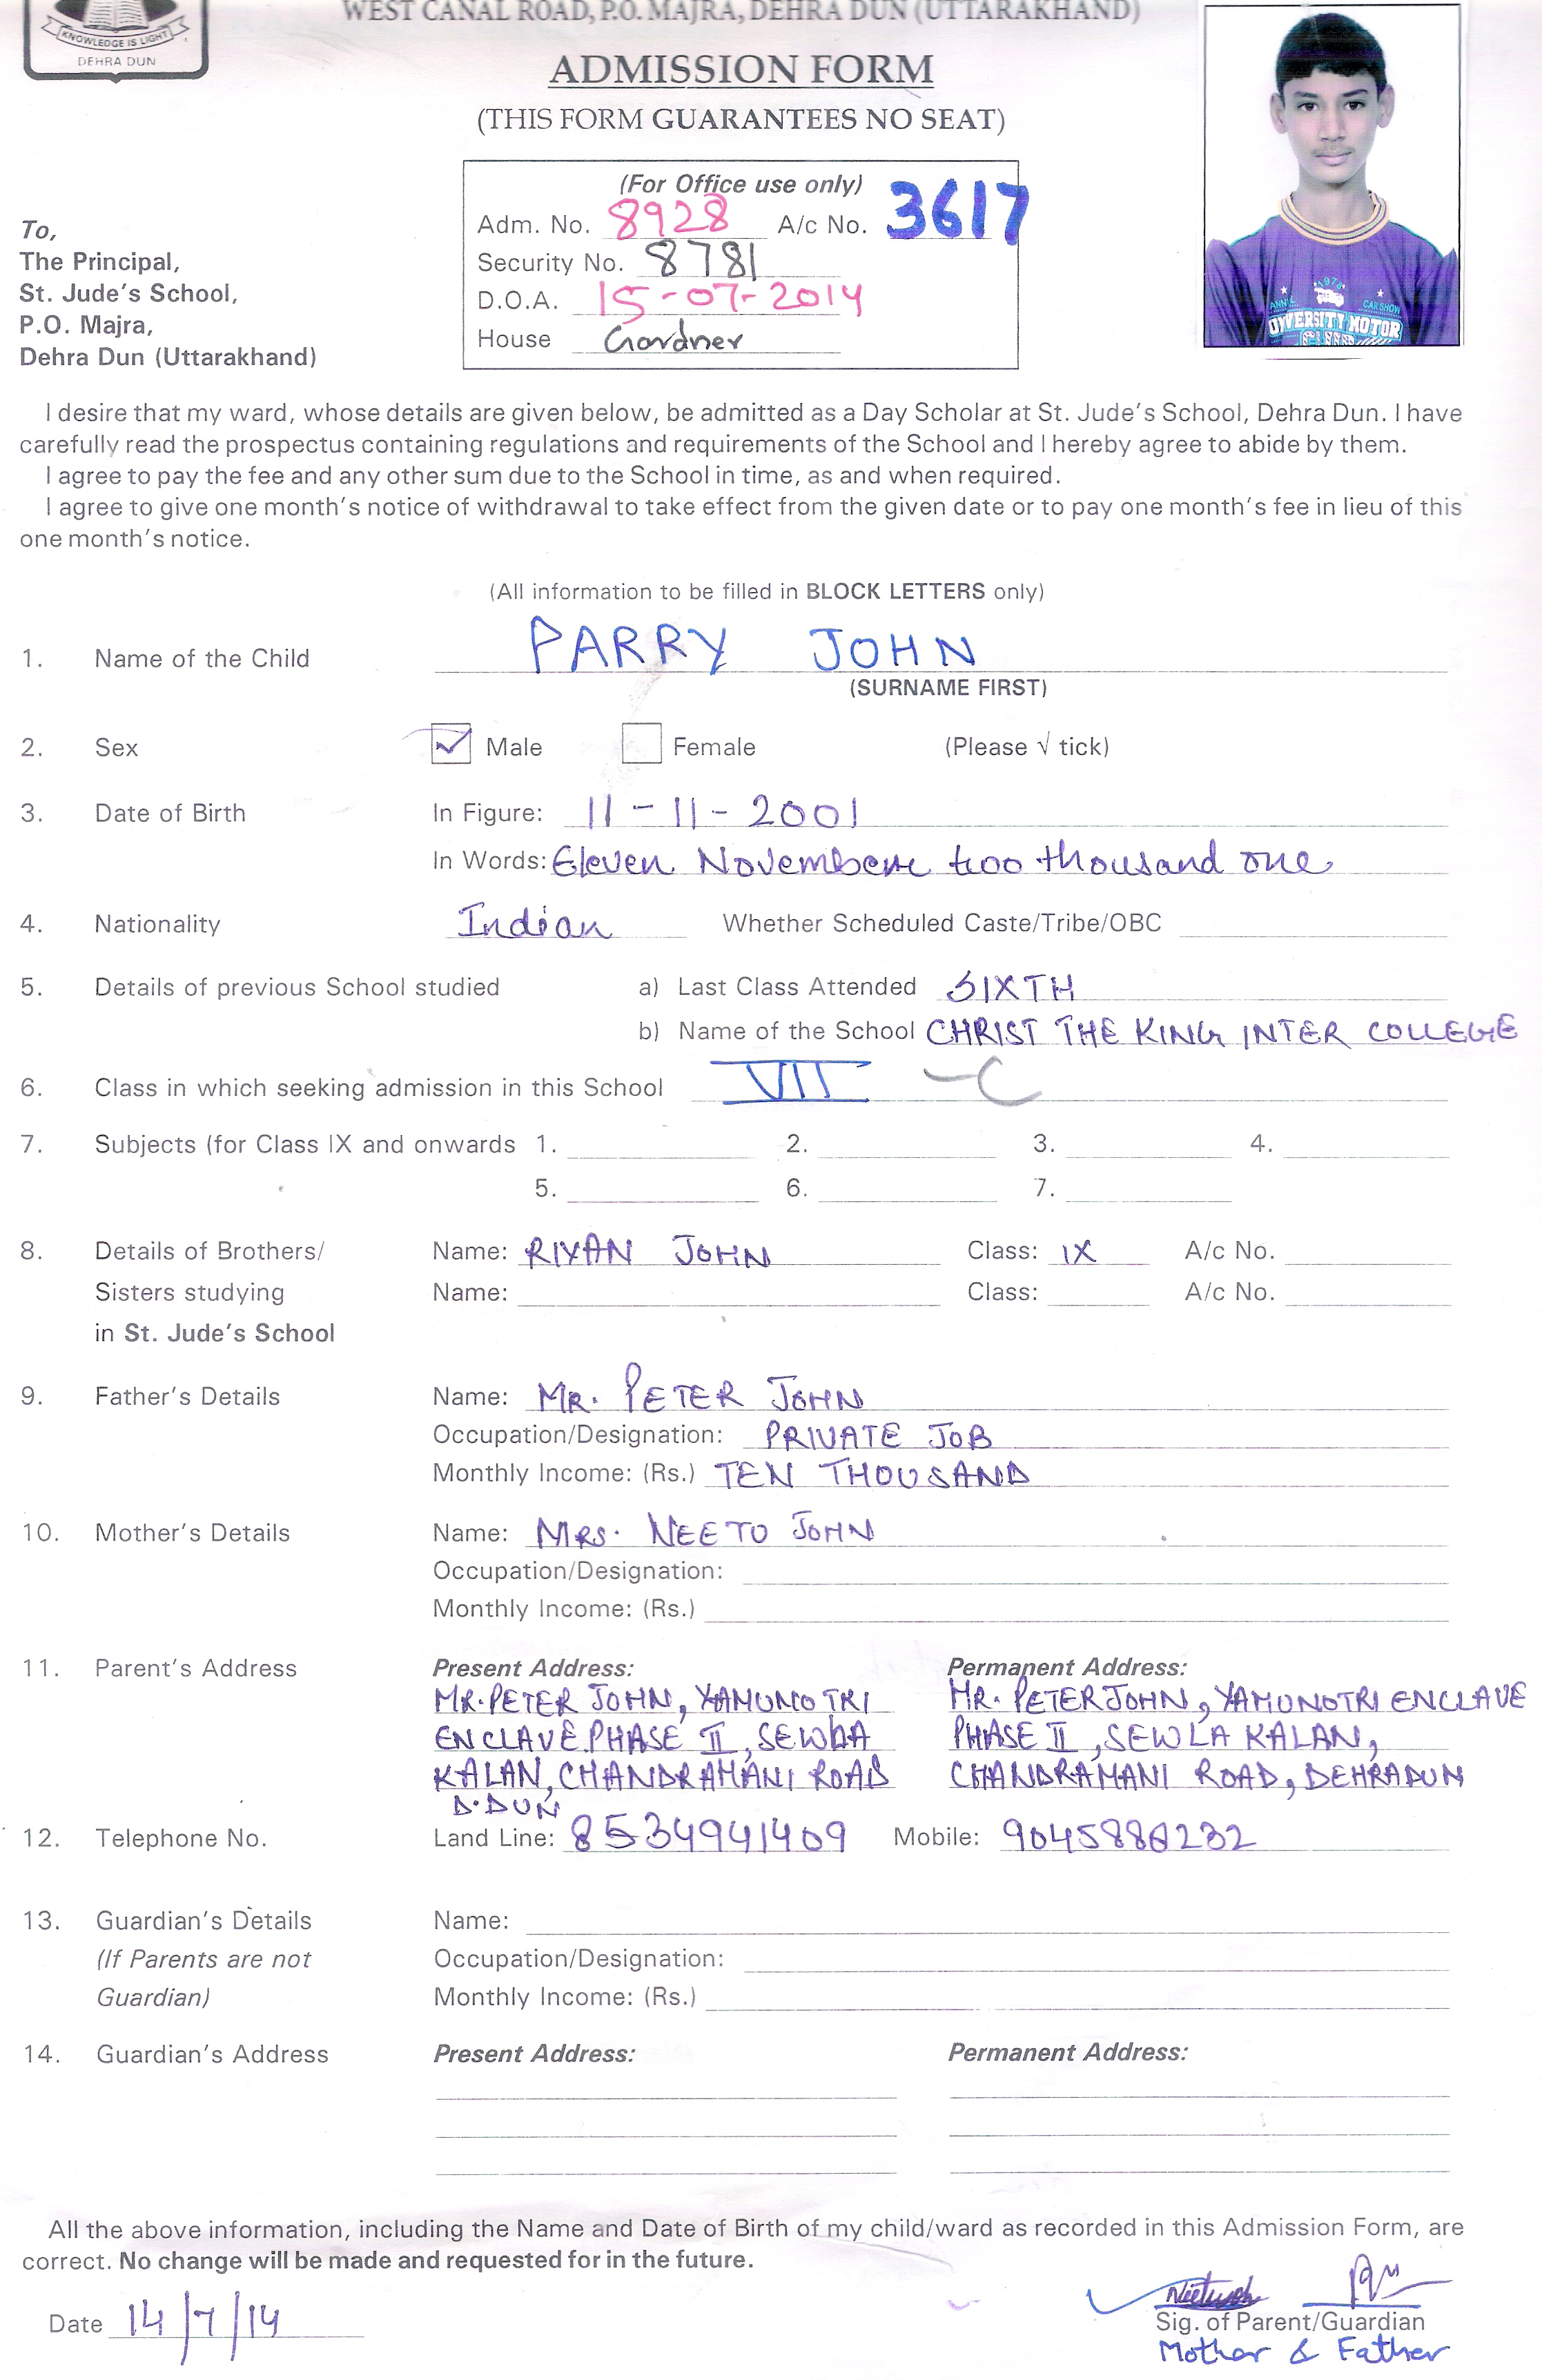 WEST CANAL ROAD, P.O. MAJRA, DEHRA DUN (UTTARAKHAND)
KNOWLEDGE IS LIGHT
DEHRA DUN
ADMISSION FORM
(THIS FORM GUARANTEES NO SEAT)
(For Office use only)
Adm. No. 8928 A/c No. 3617
Security No. 8781
D.O.A. 15-07-2014
House Gardner
To,
The Principal,
St. Jude's School,
P.O. Majra,
Dehra Dun (Uttarakhand)
ANN'L 1976 CAR SHOW
DIVERSITY MOTOR
I desire that my ward, whose details are given below, be admitted as a Day Scholar at St. Jude's School, Dehra Dun. I have
carefully read the prospectus containing regulations and requirements of the School and I hereby agree to abide by them.
I agree to pay the fee and any other sum due to the School in time, as and when required.
I agree to give one month's notice of withdrawal to take effect from the given date or to pay one month's fee in lieu of this
one month's notice.
(All information to be filled in BLOCK LETTERS only)
1. Name of the Child PARRY JOHN
(SURNAME FIRST)
2. Sex Male Female (Please √ tick)
3. Date of Birth In Figure: 11-11-2001
In Words: Eleven Novembere two thousand one
4. Nationality Indian Whether Scheduled Caste/Tribe/OBC
5. Details of previous School studied a) Last Class Attended SIXTH
b) Name of the School CHRIST THE KING INTER COLLEGE
6. Class in which seeking admission in this School VII - C
7. Subjects (for Class IX and onwards 1. 2. 3. 4.
5. 6. 7.
8. Details of Brothers/ Name: RIYAN JOHN Class: IX A/c No.
Sisters studying Name: Class: A/c No.
in St. Jude's School
9. Father's Details Name: MR. PETER JOHN
Occupation/Designation: PRIVATE JOB
Monthly Income: (Rs.) TEN THOUSAND
10. Mother's Details Name: MRS. NEETU JOHN
Occupation/Designation:
Monthly Income: (Rs.)
11. Parent's Address Present Address: Permanent Address:
MR. PETER JOHN, YAMUNOTRI MR. PETER JOHN, YAMUNOTRI ENCLAVE
ENCLAVE PHASE II, SEWLA PHASE II, SEWLA KALAN,
KALAN, CHANDRAMANI ROAD CHANDRAMANI ROAD, DEHRADUN
D.DUN
12. Telephone No. Land Line: 8534941409 Mobile: 9045888232
13. Guardian's Details Name:
(If Parents are not Occupation/Designation:
Guardian) Monthly Income: (Rs.)
14. Guardian's Address Present Address: Permanent Address:
All the above information, including the Name and Date of Birth of my child/ward as recorded in this Admission Form, are
correct. No change will be made and requested for in the future.
Date 14/7/14
Sig. of Parent/Guardian
Mother & Father